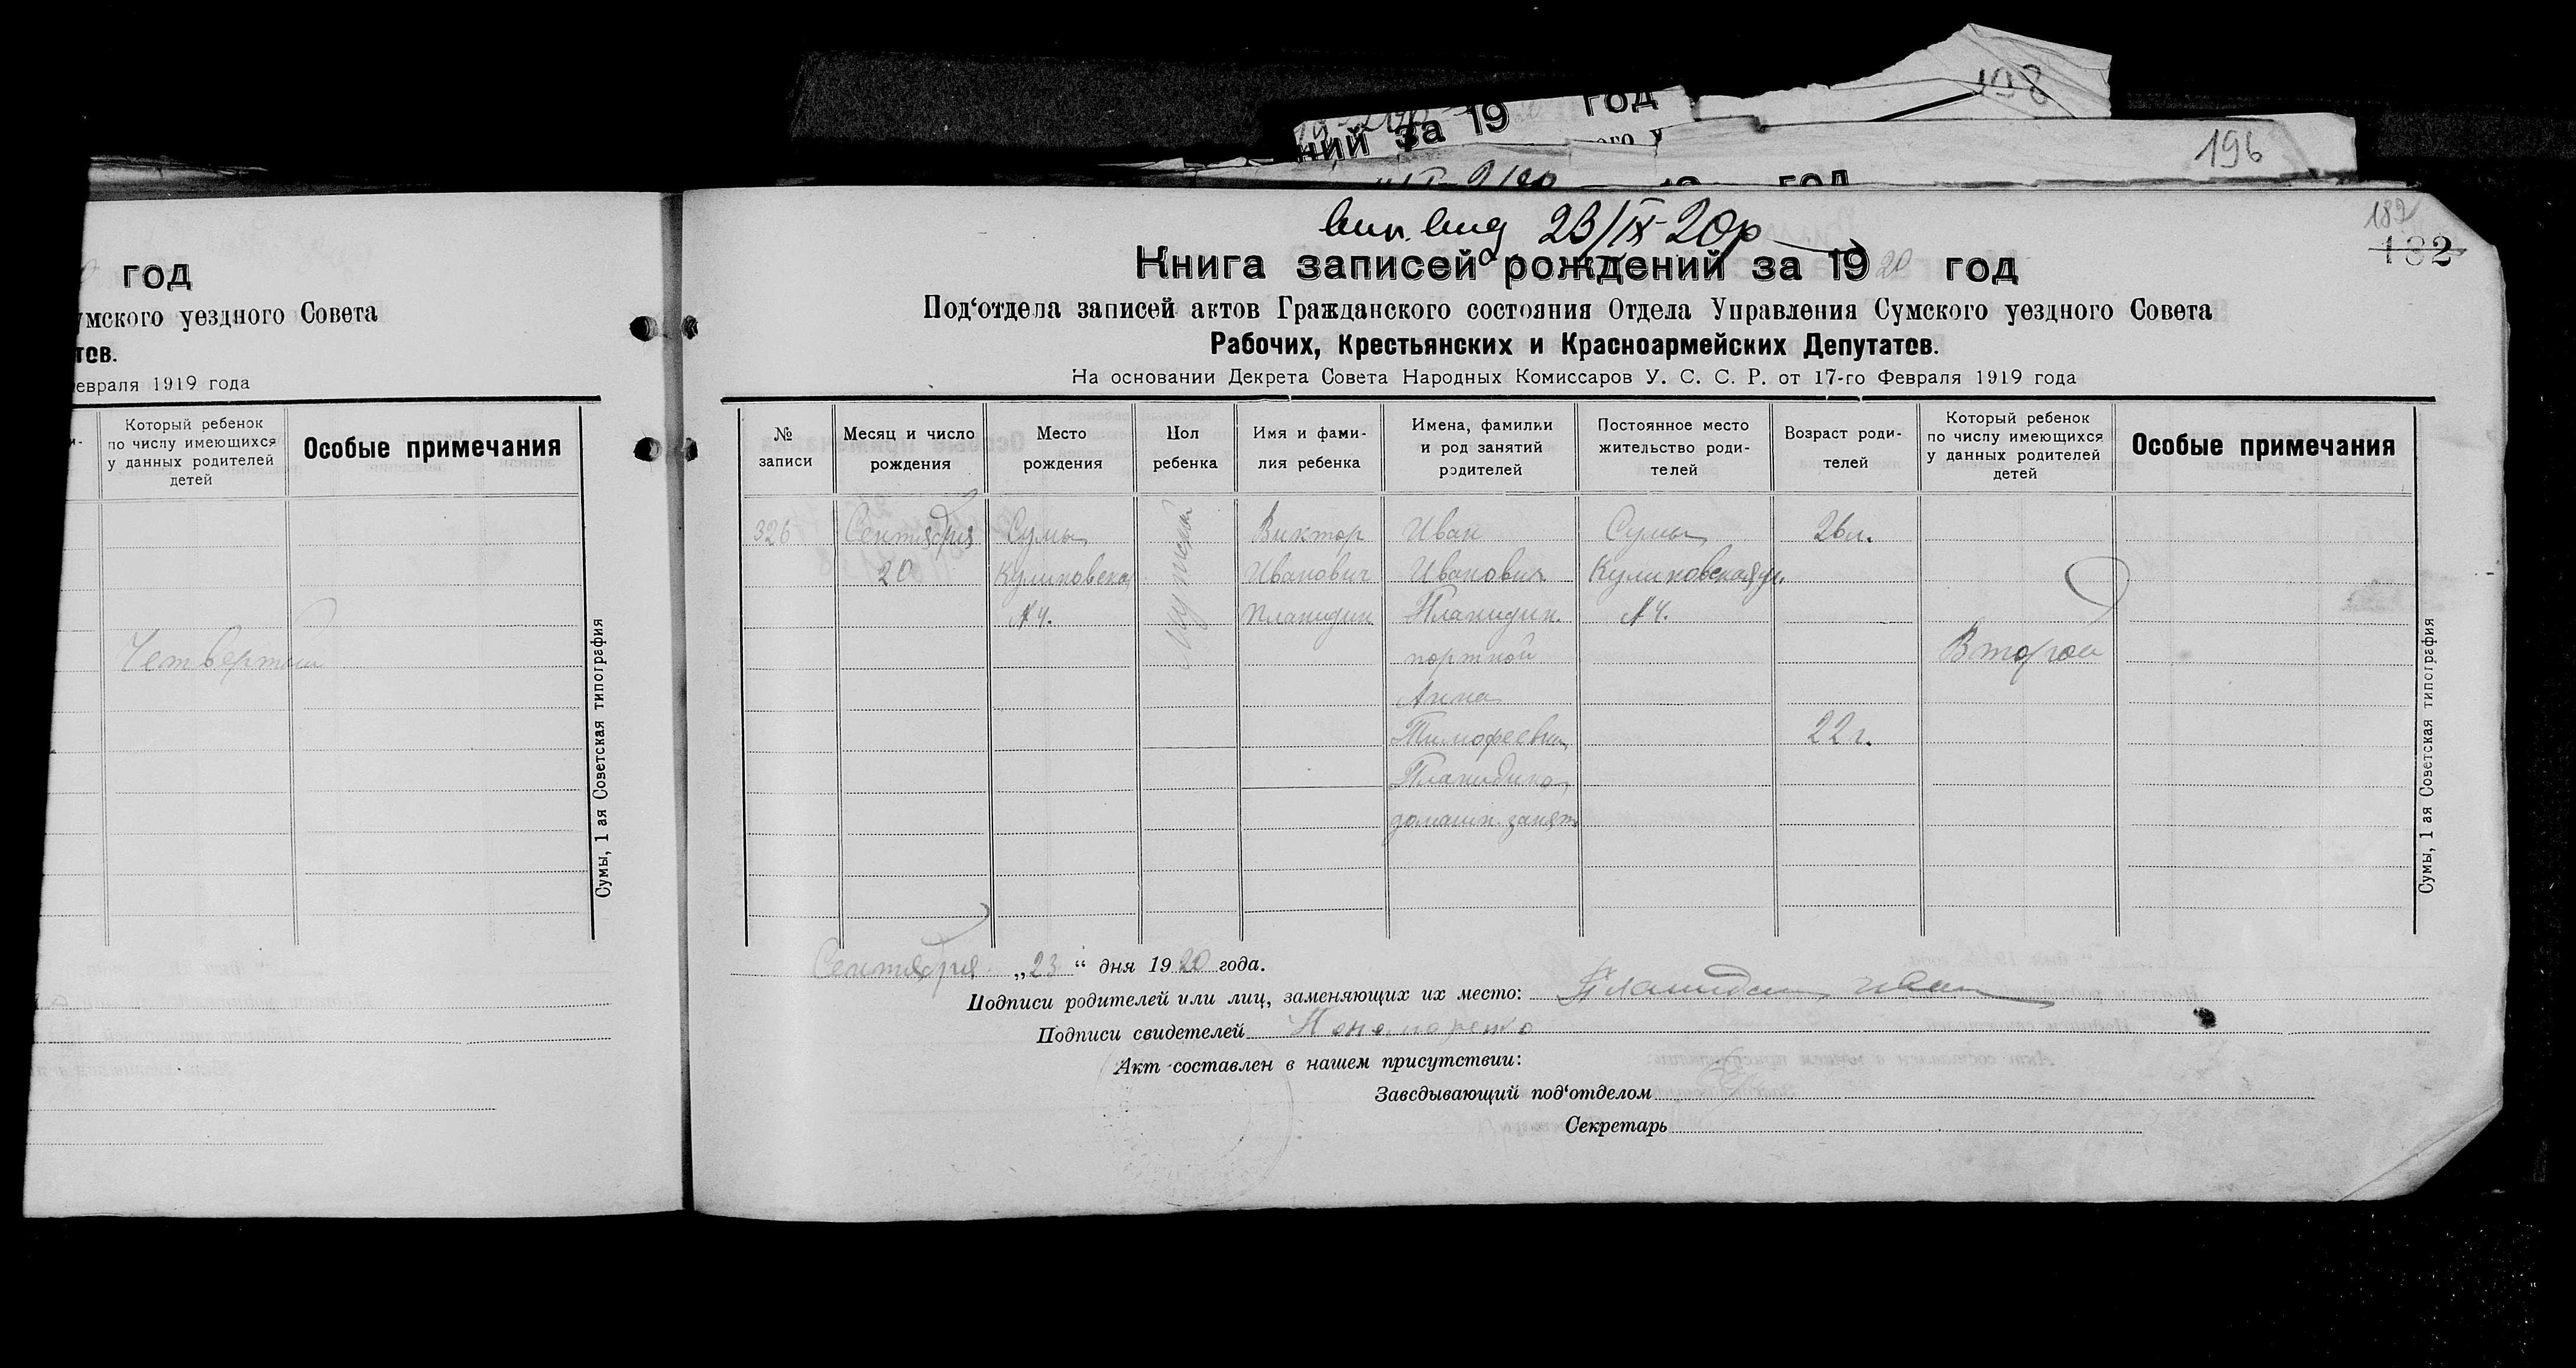 198
ний за 19 год
196
19 год
год
умского уездного Совета
тов.
евраля 1919 года
Который ребенок
по числу имеющихся
у данных родителей
детей
Особые примечания
Четвертый
Сумы, 1 ая Советская типография
вип. вид 23/IX-20р
189
182
Книга записей рождений за 1920 год
Под‘отдела записей актов Гражданского состояния Отдела Управления Сумского уездного Совета
Рабочих, Крестьянских и Красноармейских Депутатов.
На основании Декрета Совета Народных Комиссаров У. С. С. Р. от 17-го Февраля 1919 года
№
записи
Месяц и число
рождения
Место
рождения
Пол
ребенка
Имя и фами-
лия ребенка
Имена, фамилии
и род занятий
родителей
Постоянное место
жительство роди-
телей
Возраст роди-
телей
Который ребенок
по числу имеющихся
у данных родителей
детей
Особые примечания
326
Сентября
20
Сумы
Куликовская
№ 4.
мужеск
Виктор
Иванович
Плакидин
Иван
Иванович
Плакидин.
портной
Анна
Тимофеевна
Плакидина
домашн. занят
Сумы
Куликовская ул.
№ 4.
26 л.
22 г.
Второй
Сумы, 1 ая Советская типография
Сентября „23“ дня 1920 года.
Подписи родителей или лиц, заменяющих их место: Плакидин Иван
Подписи свидетелей Пономаренко
Акт составлен в нашем присутствии:
Заведывающий под‘отделом
Секретарь